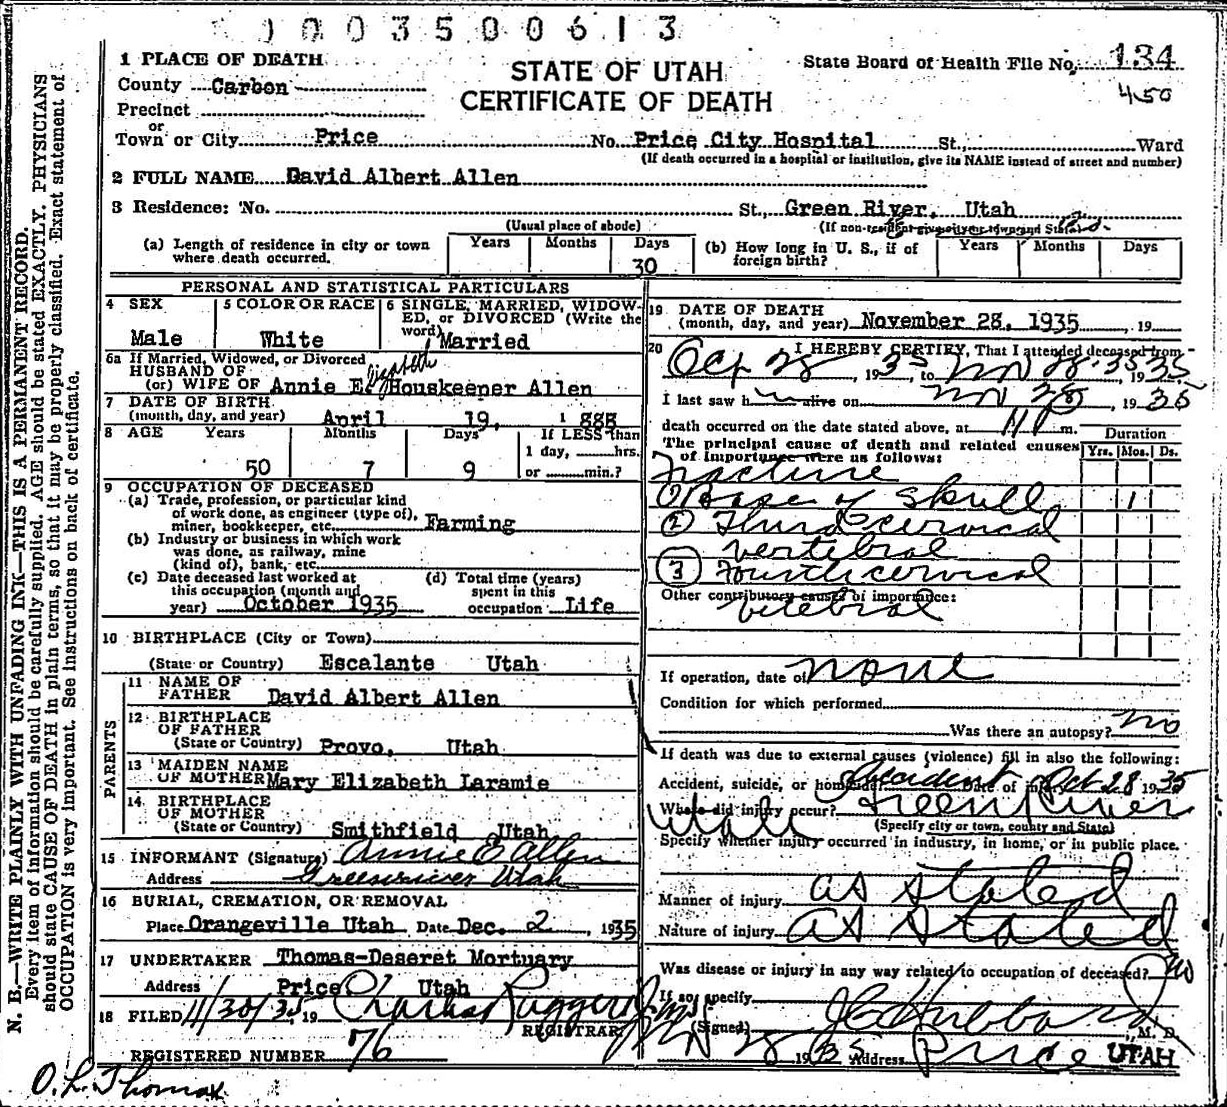 1003500613
1 PLACE OF DEATH
STATE OF UTAH
CERTIFICATE OF DEATH
State Board of Health File No. 134
450
County Carbon
Precinct
or
Town or City Price No. Price City Hospital St., Ward
(If death occurred in a hospital or institution, give its NAME instead of street and number)
2 FULL NAME David Albert Allen
3 Residence: No. St., Green River, Utah
(Usual place of abode) (If non-resident give city or town and State)
(a) Length of residence in city or town where death occurred. Years Months Days 30
(b) How long in U. S., if of foreign birth? Years Months Days
PERSONAL AND STATISTICAL PARTICULARS
4 SEX Male
5 COLOR OR RACE White
6 SINGLE, MARRIED, WIDOWED, or DIVORCED (Write the word) Married
6a If Married, Widowed, or Divorced
HUSBAND OF
(or) WIFE OF Annie Elizabeth Houskeeper Allen
7 DATE OF BIRTH
(month, day, and year) April 19, 1885
8 AGE Years 50 Months 7 Days 9 If LESS than 1 day, hrs. or min.?
9 OCCUPATION OF DECEASED
(a) Trade, profession, or particular kind
of work done, as engineer (type of),
miner, bookkeeper, etc. Farming
(b) Industry or business in which work
was done, as railway, mine
(kind of), bank, etc.
(c) Date deceased last worked at
this occupation (month and
year) October 1935
(d) Total time (years)
spent in this
occupation Life
10 BIRTHPLACE (City or Town)
(State or Country) Escalante Utah
PARENTS
11 NAME OF
FATHER David Albert Allen
12 BIRTHPLACE
OF FATHER
(State or Country) Provo, Utah
13 MAIDEN NAME
OF MOTHER Mary Elizabeth Laramie
14 BIRTHPLACE
OF MOTHER
(State or Country) Smithfield Utah
15 INFORMANT (Signature) Annie E Allen
Address Greenriver Utah
16 BURIAL, CREMATION, OR REMOVAL
Place Orangeville Utah Date Dec. 2, 1935
17 UNDERTAKER Thomas-Deseret Mortuary
Address Price Utah
18 FILED 11/30/35, 19 Charles Ruggeri
REGISTRAR
REGISTERED NUMBER 76
O. L. Thomas
19 DATE OF DEATH
(month, day, and year) November 28, 1935, 19
20 I HEREBY CERTIFY, That I attended deceased from
28, 1935, to Nov 28 35, 1935
I last saw h alive on Nov 28, 1935
death occurred on the date stated above, at 11 P m.
The principal cause of death and related causes
of importance were as follows:
Duration
Yrs. Mos. Ds.
Fracture
(1) Base of skull 1
(2) Third cervical
vertebral
(3) Fourth cervical
Other contributory causes of importance:
vetebral
If operation, date of none
Condition for which performed
Was there an autopsy? no
If death was due to external causes (violence) fill in also the following:
Accident, suicide, or homicide? Accident Date of injury Oct 28 1935
Where did injury occur? Green River
Utah
(Specify city or town, county and State)
Specify whether injury occurred in industry, in home, or in public place.
Manner of injury as stated
Nature of injury as stated
Was disease or injury in any way related to occupation of deceased? No
If so, specify
(Signed) J C Hubbard M. D.
Nov 28 1935 Address Price UTAH
N. B.—WRITE PLAINLY WITH UNFADING INK—THIS IS A PERMANENT RECORD.
Every item of information should be carefully supplied. AGE should be stated EXACTLY. PHYSICIANS
should state CAUSE OF DEATH in plain terms, so that it may be properly classified. Exact statement of
OCCUPATION is very important. See instructions on back of certificate.